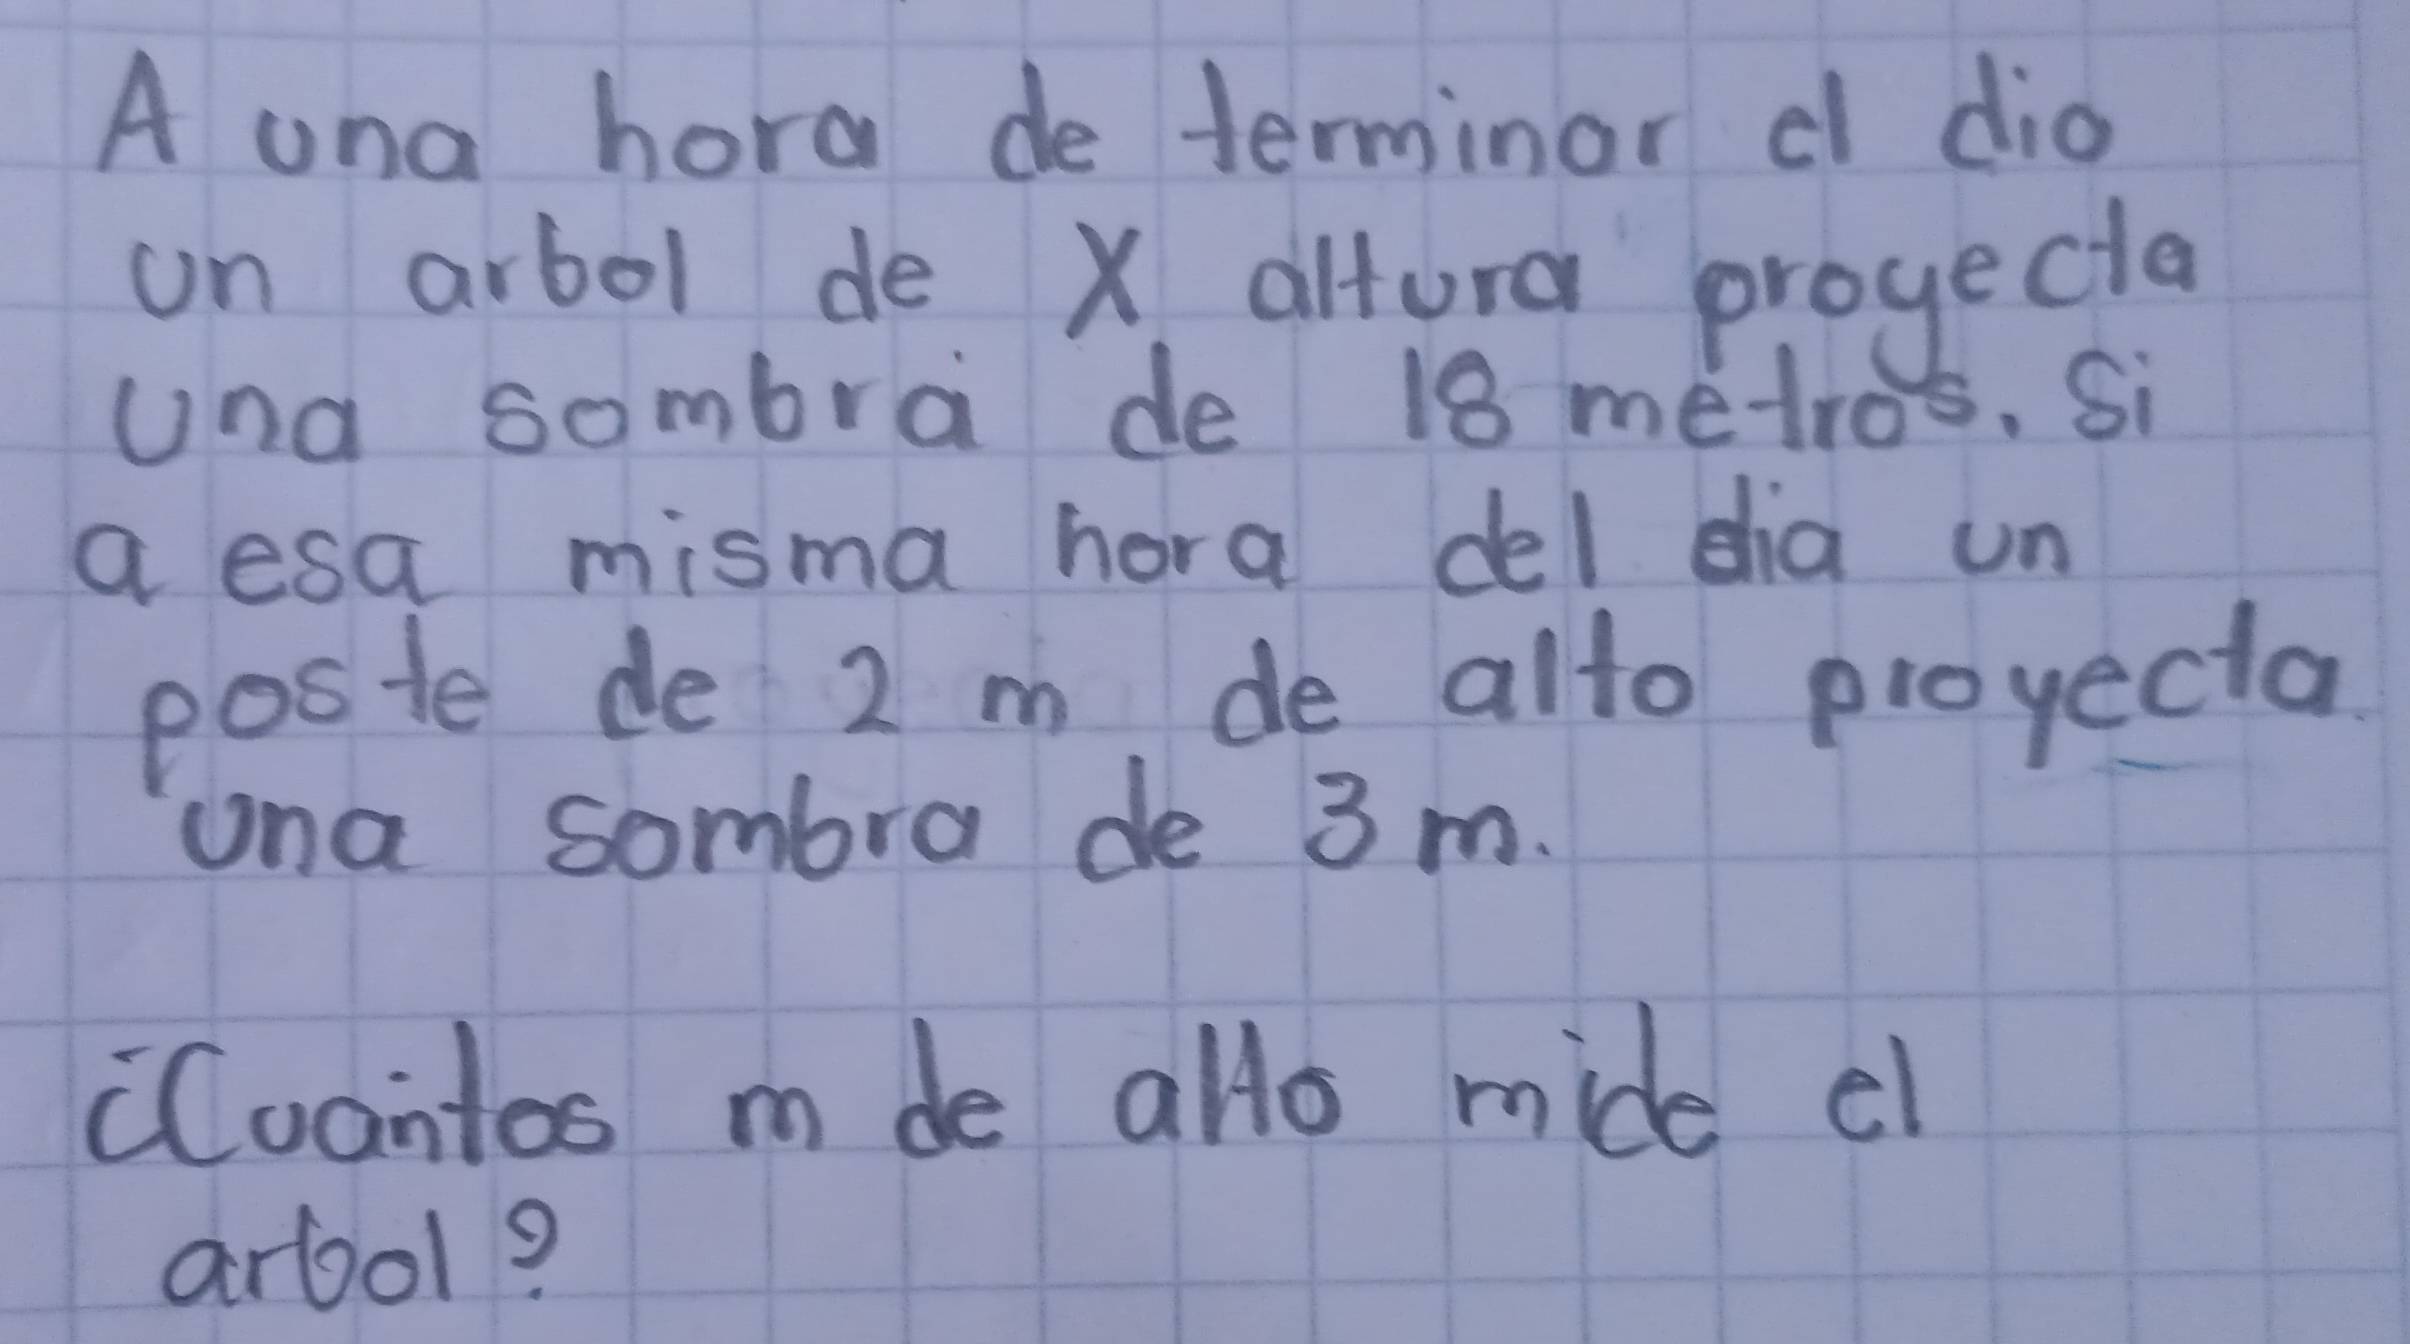 A una hora de terminar el dia
un arbol de X altura proyecta
una sombra de 18 metros. Si
a esa misma hora del dia un
poste de 2 m de alto proyecta
una sombra de 3 m.
¿Cuantos m de alto mide el
arbol?